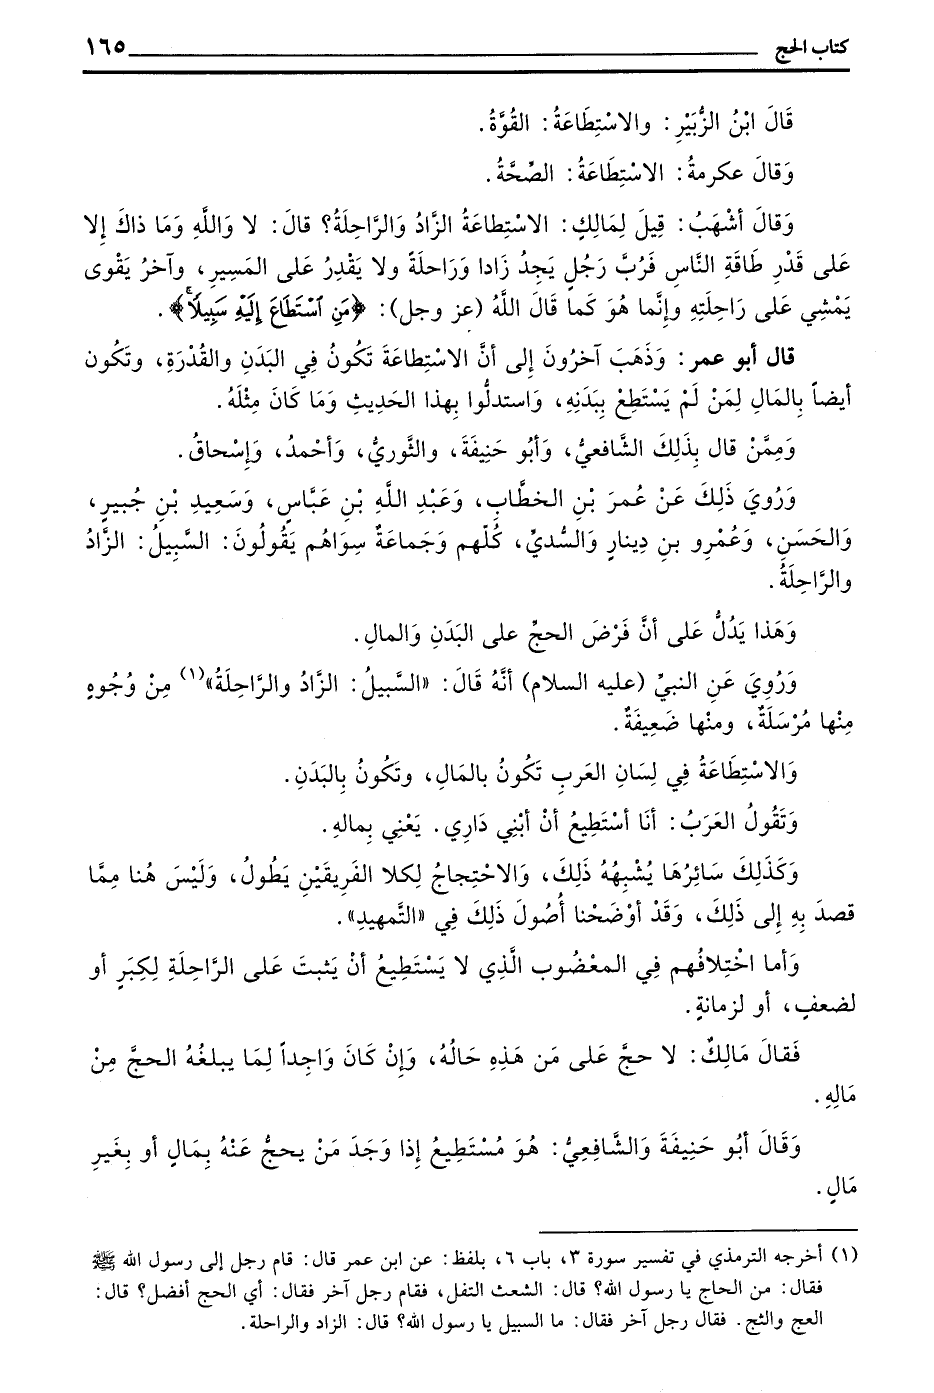 كتاب الحج ١٦٥
قَالَ ابْنُ الزُّبَيْرِ: والاسْتِطَاعَةُ: القُوَّةُ.
وَقالَ عكرمةُ: الاسْتِطَاعَةُ: الصِّحَّةُ.
وَقَالَ أشْهَبُ: قِيلَ لِمَالِكٍ: الاسْتِطاعَةُ الزَّادُ وَالرَّاحِلَةُ؟ قالَ: لا وَاللَّهِ وَمَا ذاكَ إلا
عَلى قَدْرِ طَاقَةِ النَّاسِ فَرُبَّ رَجُلٍ يَجِدُ زَادا وَرَاحلةً ولا يَقْدِرُ عَلى المَسِيرِ، وآخرُ يَقْوى
يَمْشِي عَلى رَاحِلَتِهِ وإنَّما هُوَ كَما قَالَ اللَّهُ (عز وجل): ﴿مَنِ ٱسْتَطَاعَ إِلَيْهِ سَبِيلًا﴾.
قال أبو عمر: وَذَهَبَ آخرُونَ إلى أنَّ الاسْتِطاعَةَ تَكُونُ فِي البَدَنِ والقُدْرَةِ، وتَكُون
أيضاً بِالمَالِ لِمَنْ لَمْ يَسْتَطِعْ بِبَدَنِهِ، وَاستدلُّوا بِهذا الحَدِيثِ وَمَا كَانَ مِثْلَهُ.
وَمِمَّنْ قال بِذَلِكَ الشَّافعيُّ، وَأبُو حَنِيفَةَ، والثَّوريُّ، وَأحْمدُ، وَإسْحاقُ.
وَرُويَ ذَلِكَ عَنْ عُمرَ بْنِ الخطَّابِ، وَعَبْدِ اللَّهِ بْنِ عَبَّاسٍ، وَسَعِيدِ بْنِ جُبيرٍ،
وَالحَسَنِ، وَعُمْرِو بنِ دِينارٍ وَالسُّديِّ، كُلّهم وَجَماعَةٌ سِوَاهُم يَقُولُونَ: السَّبِيلُ: الزَّادُ
والرَّاحِلَةُ.
وَهَذا يَدُلُّ عَلى أنَّ فَرْضَ الحجِّ على البَدَنِ وَالمالِ.
وَرُوِيَ عَنِ النبيِّ (عليه السلام) أنَّهُ قَالَ: «السَّبيلُ: الزَّادُ والرَّاحِلَةُ»(١) مِنْ وُجُوهٍ
مِنْها مُرْسَلَةٌ، ومنْها ضَعِيفَةٌ.
وَالاسْتِطَاعَةُ فِي لِسَانِ العَربِ تَكُونُ بالمَالِ، وتَكُونُ بِالبَدَنِ.
وَتَقُولُ العَرَبُ: أنَا أسْتَطِيعُ أنْ أبْنِي دَارِي. يَعْنِي بِمالهِ.
وَكَذَلِكَ سَائِرُهَا يُشْبِهُهُ ذَلِكَ، وَالاحْتِجاجُ لِكلا الفَرِيقَيْنِ يَطُولُ، وَلَيْسَ هُنا مِمَّا
قصدَ بِهِ إلى ذَلِكَ، وَقَدْ أوْضَحْنا أُصُولَ ذَلِكَ فِي «التَّمهيدِ».
وَأما اخْتِلافُهم فِي المعْضُوب الَّذِي لا يَسْتَطِيعُ أنْ يَثبتَ عَلى الرَّاحِلَةِ لِكِبَرٍ أو
لضعفٍ، أو لزمانةٍ.
فَقالَ مَالِكٌ: لا حجَّ عَلى مَن هَذِهِ حَالُهُ، وَإنْ كَانَ وَاجِداً لِمَا يبلغُهُ الحجَّ مِنْ
مَالِهِ.
وَقَالَ أبُو حَنِيفَةَ وَالشَّافِعِيُّ: هُوَ مُسْتَطِيعُ إذا وَجَدَ مَنْ يحجُّ عَنْهُ بِمَالٍ أو بِغَيرِ
مَالٍ.
(١) أخرجه الترمذي في تفسير سورة ٣، باب ٦، بلفظ: عن ابن عمر قال: قام رجل إلى رسول الله ﷺ
فقال: من الحاج يا رسول الله؟ قال: الشعث التفل، فقام رجل آخر فقال: أي الحج أفضل؟ قال:
العج والثج. فقال رجل آخر فقال: ما السبيل يا رسول الله؟ قال: الزاد والراحلة.